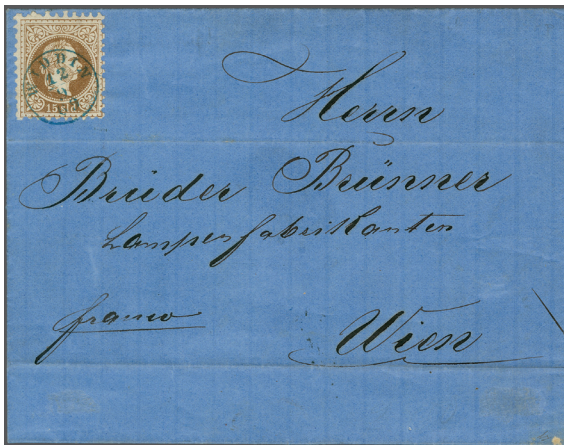 WIDDIN
12
15 sld.
Herrn
Brüder Brünner
Lampenfabrikanten
franco
Wien